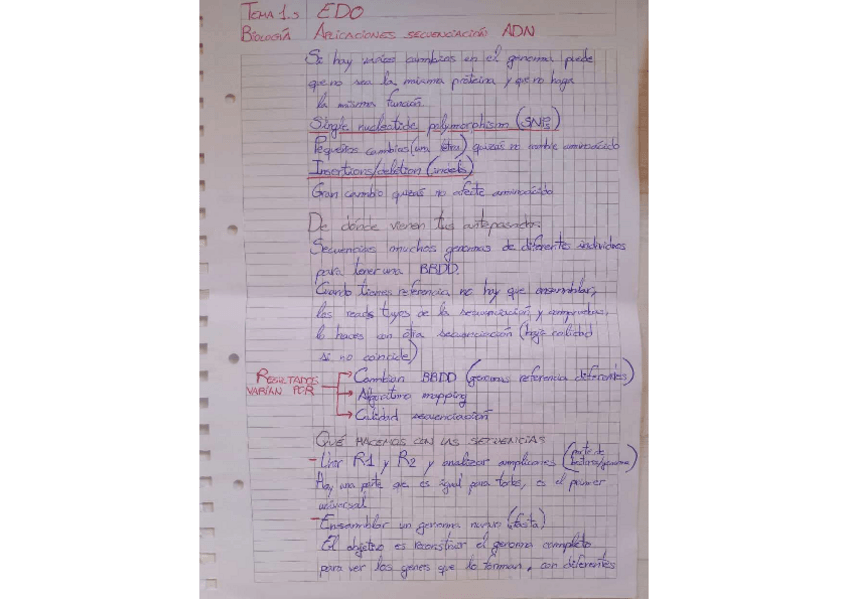 TEMA 1.3 EDO
BIOLOGÍA APLICACIONES SECUENCIACIÓN ADN
Si hay varios cambios en el genoma puede
que no sea la misma proteína y que no haga
la misma función.
Single nucleotide polymorphism (SNPs)
Pequeños cambios (una letra) quizás no cambie aminoácido
Insertions/deletion (indels)
Gran cambio quizás no afecte aminoácido
De dónde vienen tus antepasados.
Secuencias muchos genomas de diferentes individuos
para tener una BBDD.
Cuando tienes referencia no hay que ensamblar,
los reads tuyos de la secuenciación y compruebas,
lo haces con otra secuenciación (baja calidad
si no coincide)
RESULTADOS VARÍAN POR
Cambian BBDD (genomas referencia diferentes)
Algoritmo mapping
Calidad secuenciación
QUÉ HACEMOS CON LAS SECUENCIAS
- Unir R1 y R2 y analizar amplicones (parte de
Hay una parte que es igual para todos, es el primer
universal
- Ensamblar un genoma nuevo (fasta)
El objetivo es reconstruir el genoma completo
para ver los genes que lo forman, con diferentes